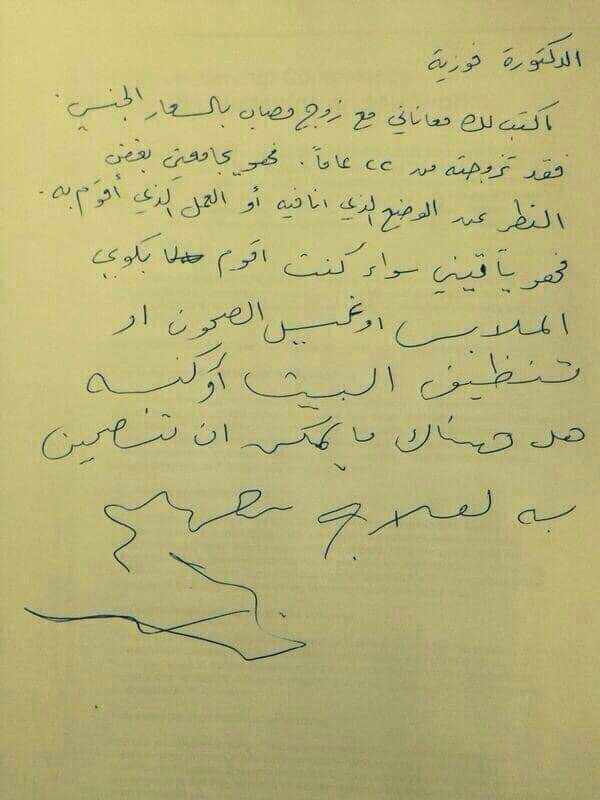 الدكتورة فوزية
اكتب لك معاناتي مع زوج مصاب بالسعار الجنسي.
فقد تزوجته من ٢٢ عاماً. فهو يجامعني بغض
النظر عن الوضع الذي انا فيه أو العمل الذي أقوم به.
فهو يأتيني سواء كنت اقوم بكوي
الملابس او غسيل الصحون او
تنظيف البيت أو كنسه
هل هناك ما يمكن ان تنصحين
به لعلاج